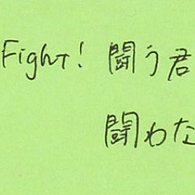 Fight! 闘う君
闘わな